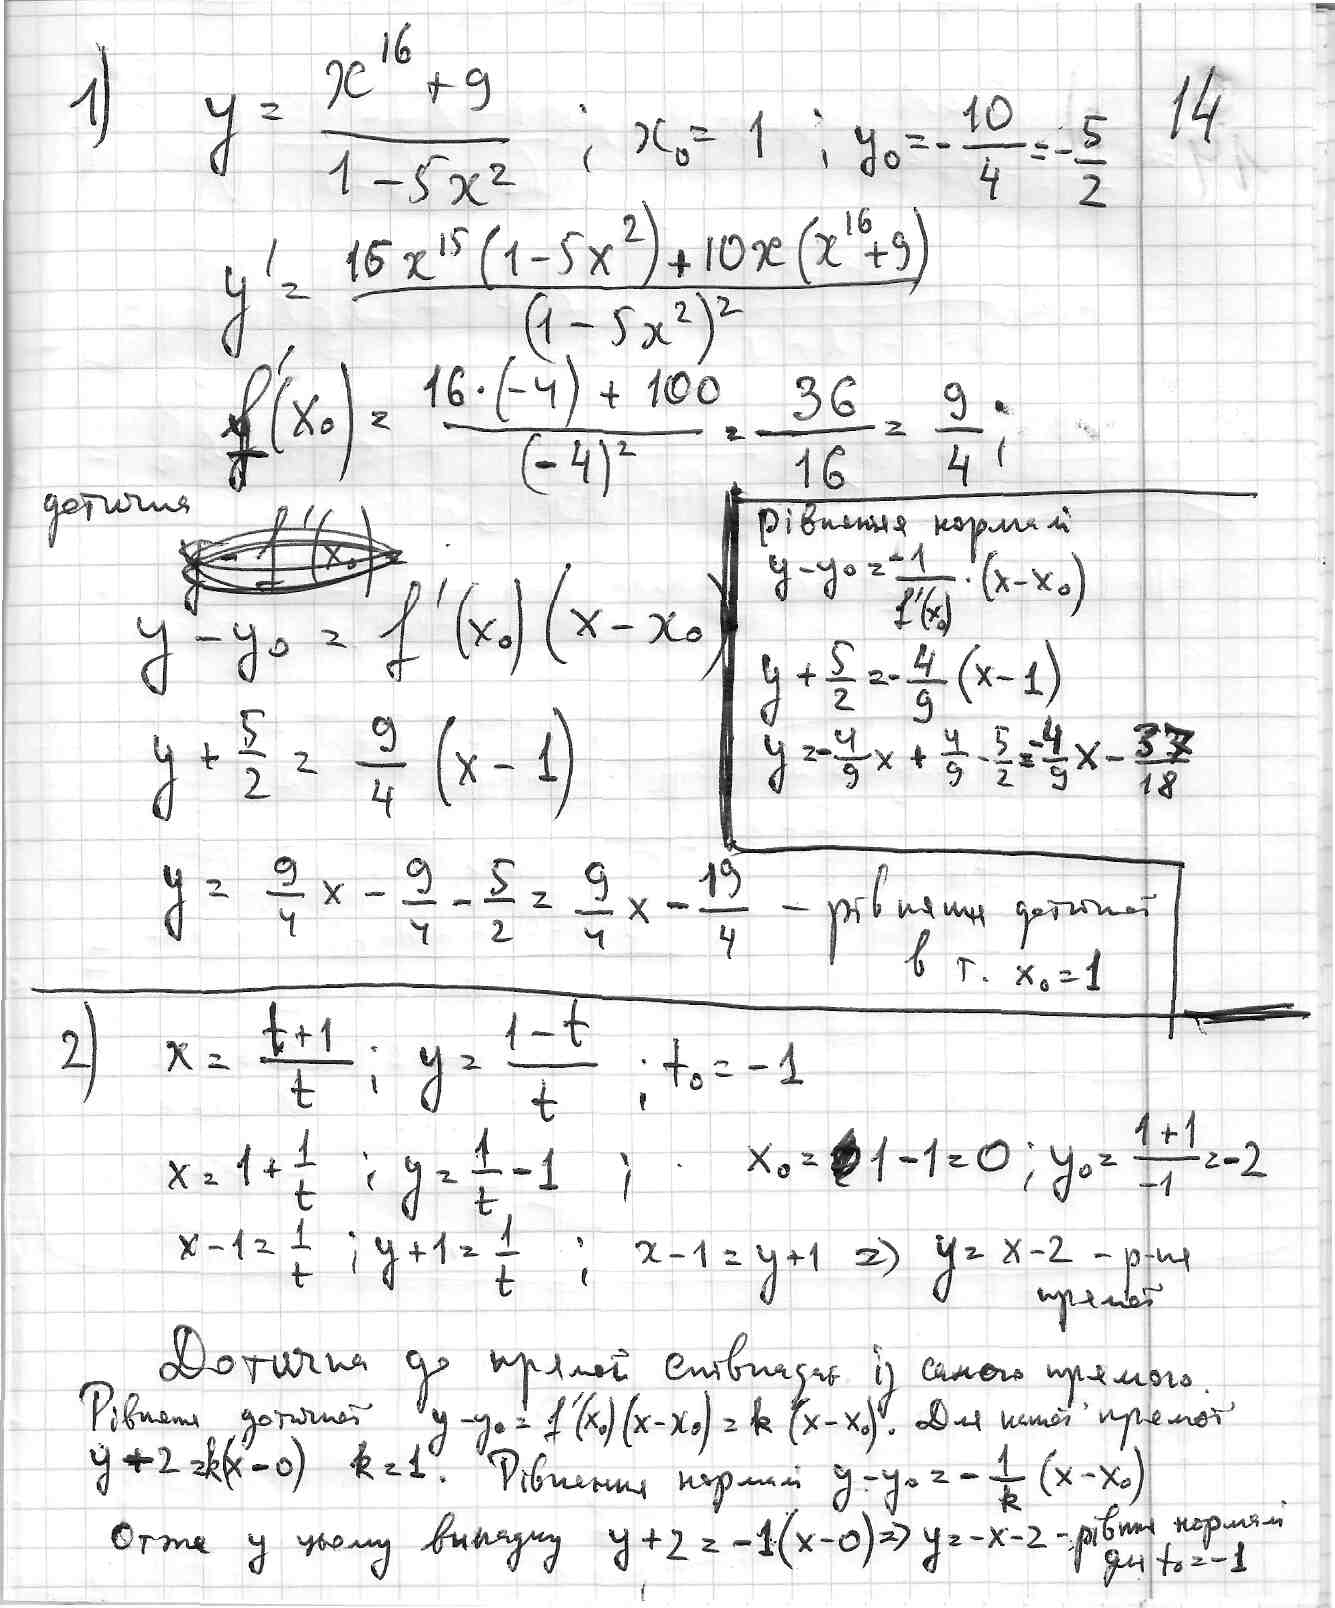 14
1) y = (x^16 + 9)/(1 - 5x^2) ; x₀ = 1 ; y₀ = -10/4 = -5/2
y' = (16x^15 (1 - 5x^2) + 10x (x^16 + 9))/(1 - 5x^2)^2
f'(x₀) = (16·(-4) + 100)/(-4)^2 = 36/16 = 9/4 ;
дотична
y - y₀ = f'(x₀)(x - x₀)
y + 5/2 = 9/4 (x - 1)
y = 9/4 x - 9/4 - 5/2 = 9/4 x - 19/4 - рівняння дотичної
в т. x₀ = 1
Рівняння нормалі
y - y₀ = -1/f'(x₀) · (x - x₀)
y + 5/2 = -4/9 (x - 1)
y = -4/9 x + 4/9 - 5/2 = -4/9 x - 37/18
2) x = (t+1)/t ; y = (1-t)/t ; t₀ = -1
x = 1 + 1/t ; y = 1/t - 1 ; x₀ = 1 - 1 = 0 ; y₀ = (1+1)/-1 = -2
x - 1 = 1/t ; y + 1 = 1/t ; x - 1 = y + 1 => y = x - 2 - р-ня
прямої
Дотична до прямої співпадає із самою прямою.
Рівняння дотичної y - y₀ = f'(x₀)(x - x₀) = k (x - x₀). Для нашої прямої
y + 2 = k(x - 0) k = 1. Рівняння нормалі y - y₀ = -1/k (x - x₀)
Отже у цьому випадку y + 2 = -1(x - 0) => y = -x - 2 - рівняння нормалі
для t₀ = -1